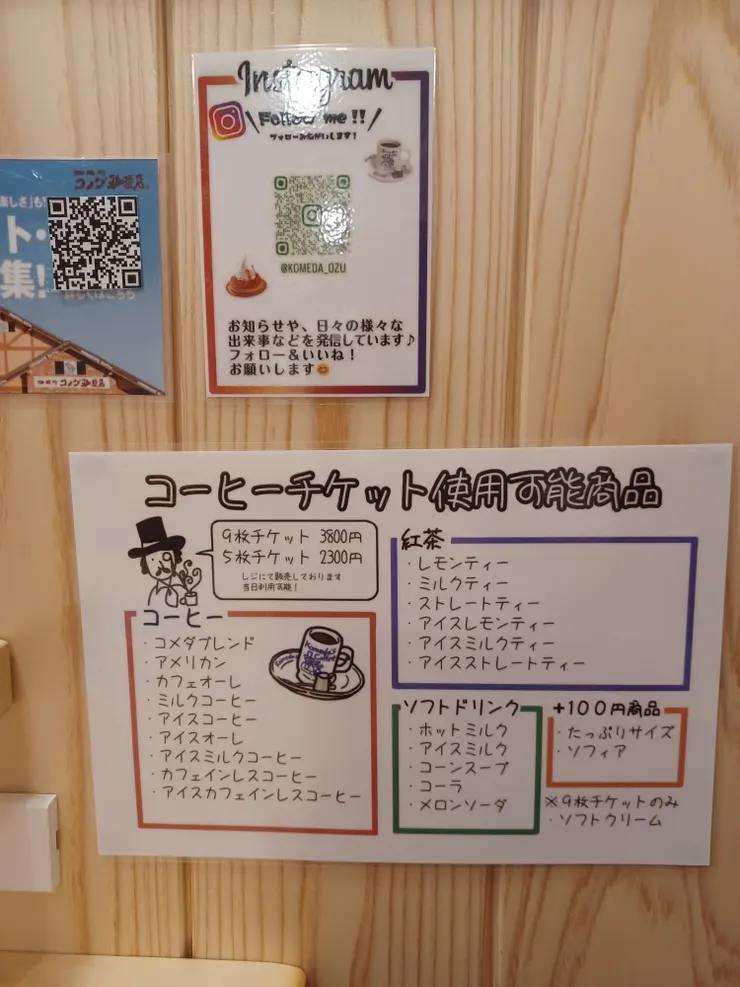 Instagram
Follow me!!
フォローお願いします!
@KOMEDA_OZU
お知らせや、日々の様々な
出来事などを発信しています♪
フォロー&いいね!
お願いします😊
コメダ珈琲店
楽しさ」も!
ト・
集!
詳しくはこちら
珈琲所 コメダ珈琲店
コーヒーチケット使用可能商品
9枚チケット 3800円
5枚チケット 2300円
レジにて販売しております
当日利用可能!
コーヒー
・コメダブレンド
・アメリカン
・カフェオーレ
・ミルクコーヒー
・アイスコーヒー
・アイスオーレ
・アイスミルクコーヒー
・カフェインレスコーヒー
・アイスカフェインレスコーヒー
紅茶
・レモンティー
・ミルクティー
・ストレートティー
・アイスレモンティー
・アイスミルクティー
・アイスストレートティー
ソフトドリンク
・ホットミルク
・アイスミルク
・コーンスープ
・コーラ
・メロンソーダ
+100円商品
・たっぷりサイズ
・ソフィア
※9枚チケットのみ
・ソフトクリーム